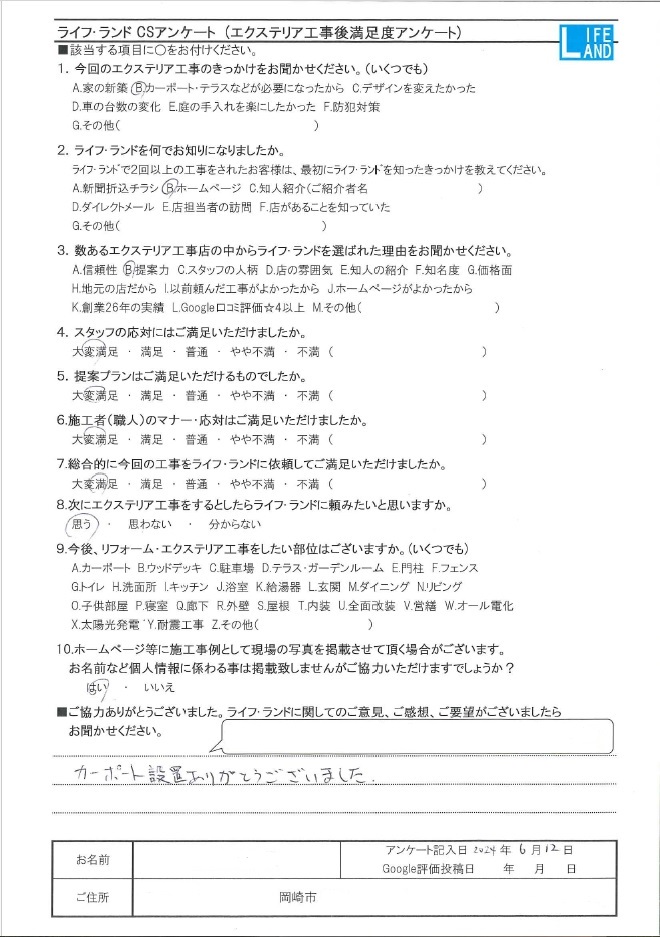 ライフ・ランド CSアンケート（エクステリア工事後満足度アンケート）
LIFE LAND
■該当する項目に〇をお付けください。
1. 今回のエクステリア工事のきっかけをお聞かせください。（いくつでも）
A.家の新築 B.カーポート・テラスなどが必要になったから C.デザインを変えたかった
D.車の台数の変化 E.庭の手入れを楽にしたかった F.防犯対策
G.その他（ ）
2. ライフ・ランドを何でお知りになりましたか。
ライフ・ランドで2回以上の工事をされたお客様は、最初にライフ・ランドを知ったきっかけを教えてください。
A.新聞折込チラシ B.ホームページ C.知人紹介（ご紹介者名 ）
D.ダイレクトメール E.店担当者の訪問 F.店があることを知っていた
G.その他（ ）
3. 数あるエクステリア工事店の中からライフ・ランドを選ばれた理由をお聞かせください。
A.信頼性 B.提案力 C.スタッフの人柄 D.店の雰囲気 E.知人の紹介 F.知名度 G.価格面
H.地元の店だから I.以前頼んだ工事がよかったから J.ホームページがよかったから
K.創業26年の実績 L.Google口コミ評価☆4以上 M.その他（ ）
4. スタッフの応対にはご満足いただけましたか。
大変満足 ・ 満足 ・ 普通 ・ やや不満 ・ 不満 （ ）
5. 提案プランはご満足いただけるものでしたか。
大変満足 ・ 満足 ・ 普通 ・ やや不満 ・ 不満 （ ）
6.施工者（職人）のマナー・応対はご満足いただけましたか。
大変満足 ・ 満足 ・ 普通 ・ やや不満 ・ 不満 （ ）
7.総合的に今回の工事をライフ・ランドに依頼してご満足いただけましたか。
大変満足 ・ 満足 ・ 普通 ・ やや不満 ・ 不満 （ ）
8.次にエクステリア工事をするとしたらライフ・ランドに頼みたいと思いますか。
思う ・ 思わない ・ 分からない
9.今後、リフォーム・エクステリア工事をしたい部位はございますか。（いくつでも）
A.カーポート B.ウッドデッキ C.駐車場 D.テラス・ガーデンルーム E.門柱 F.フェンス
G.トイレ H.洗面所 I.キッチン J.浴室 K.給湯器 L.玄関 M.ダイニング N.リビング
O.子供部屋 P.寝室 Q.廊下 R.外壁 S.屋根 T.内装 U.全面改装 V.営繕 W.オール電化
X.太陽光発電 Y.耐震工事 Z.その他（ ）
10.ホームページ等に施工事例として現場の写真を掲載させて頂く場合がございます。
お名前など個人情報に係わる事は掲載致しませんがご協力いただけますでしょうか？
はい ・ いいえ
■ご協力ありがとうございました。ライフ・ランドに関してのご意見、ご感想、ご要望がございましたら
お聞かせください。
カーポート設置ありがとうございました.
お名前 アンケート記入日 2024年 6月12日
Google評価投稿日 年 月 日
ご住所 岡崎市